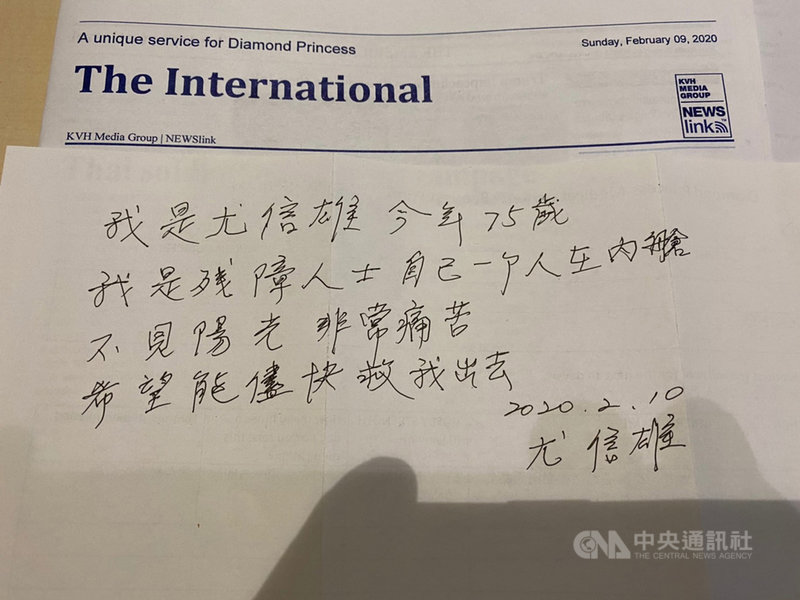 A unique service for Diamond Princess
Sunday, February 09, 2020
The International
KVH
MEDIA
GROUP
NEWS
link
KVH Media Group | NEWSlink
我是尤信雄 今年75歲
我是残障人士自己一个人在內艙
不見陽光 非常痛苦
希望能儘快救我出去
2020.2.10
尤信雄
CNA 中央通訊社
THE CENTRAL NEWS AGENCY